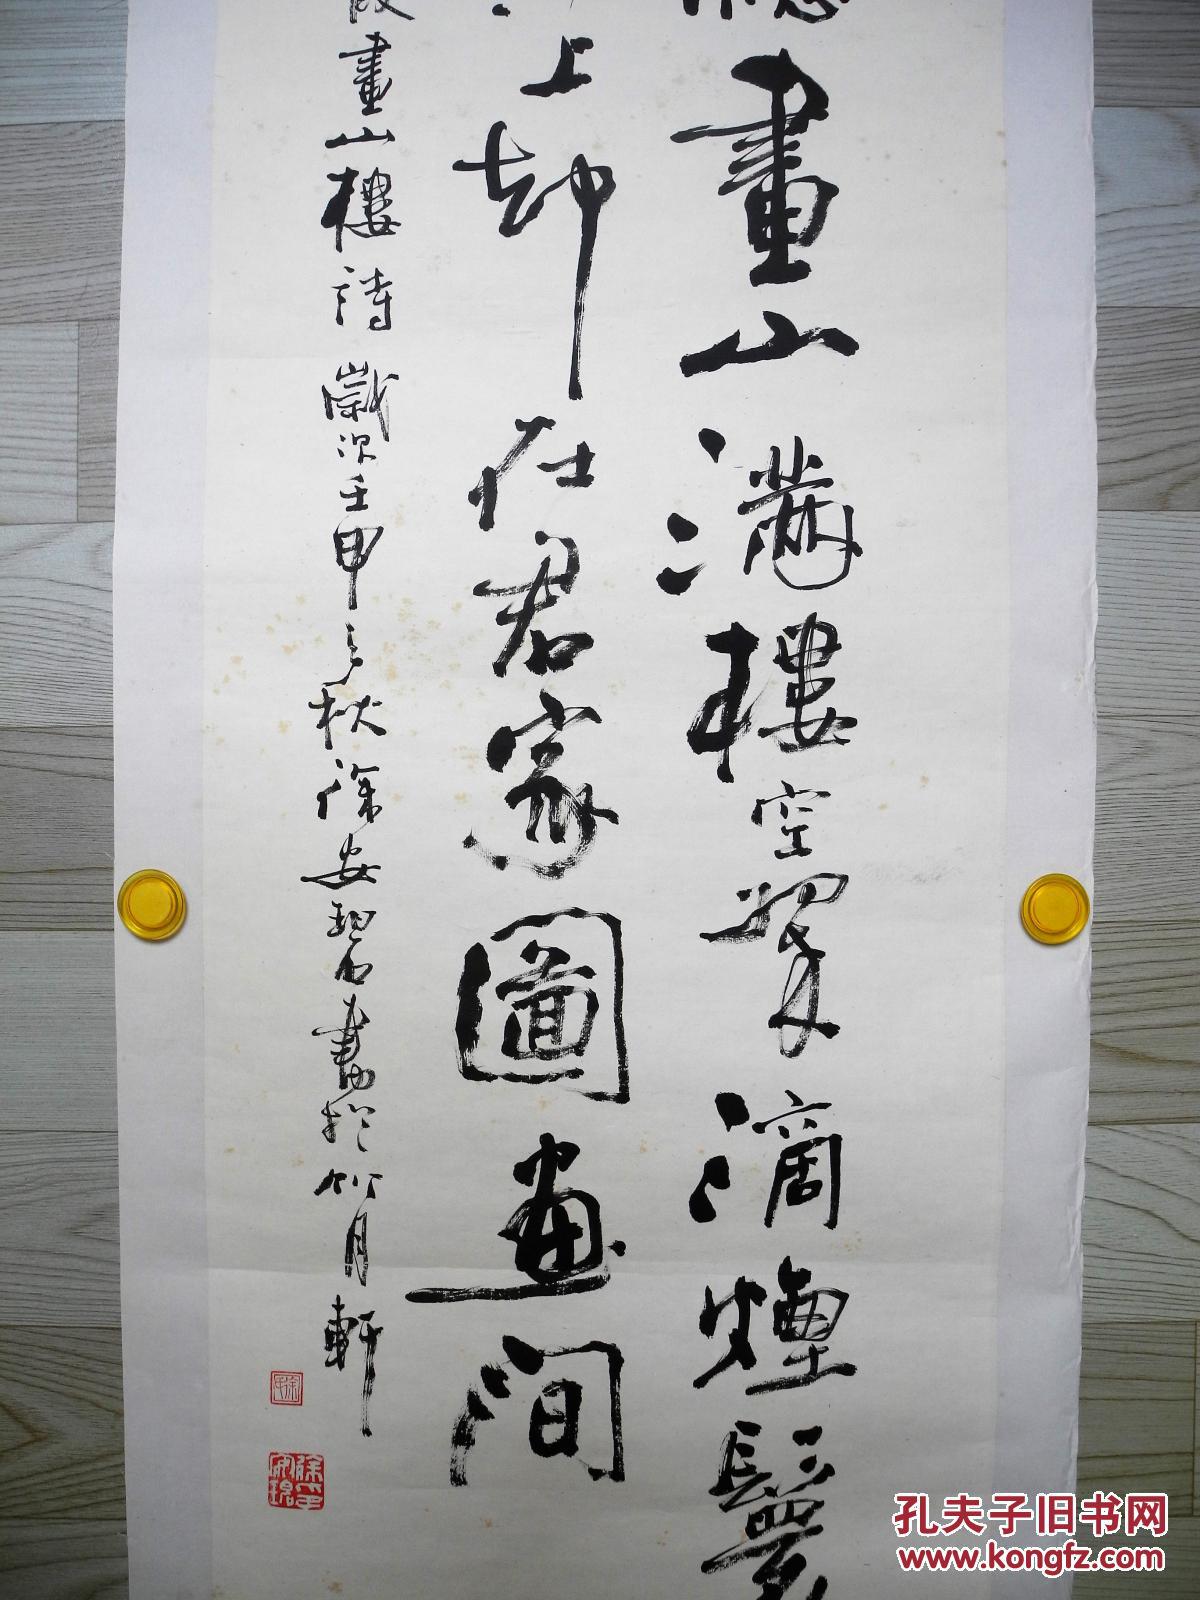 畫山滿樓空翠滴煙鬟
上却在君家圖畫间
畫山樓詩 歲次壬申之秋徐安碧書於竹月軒
孔夫子旧书网
www.kongfz.com